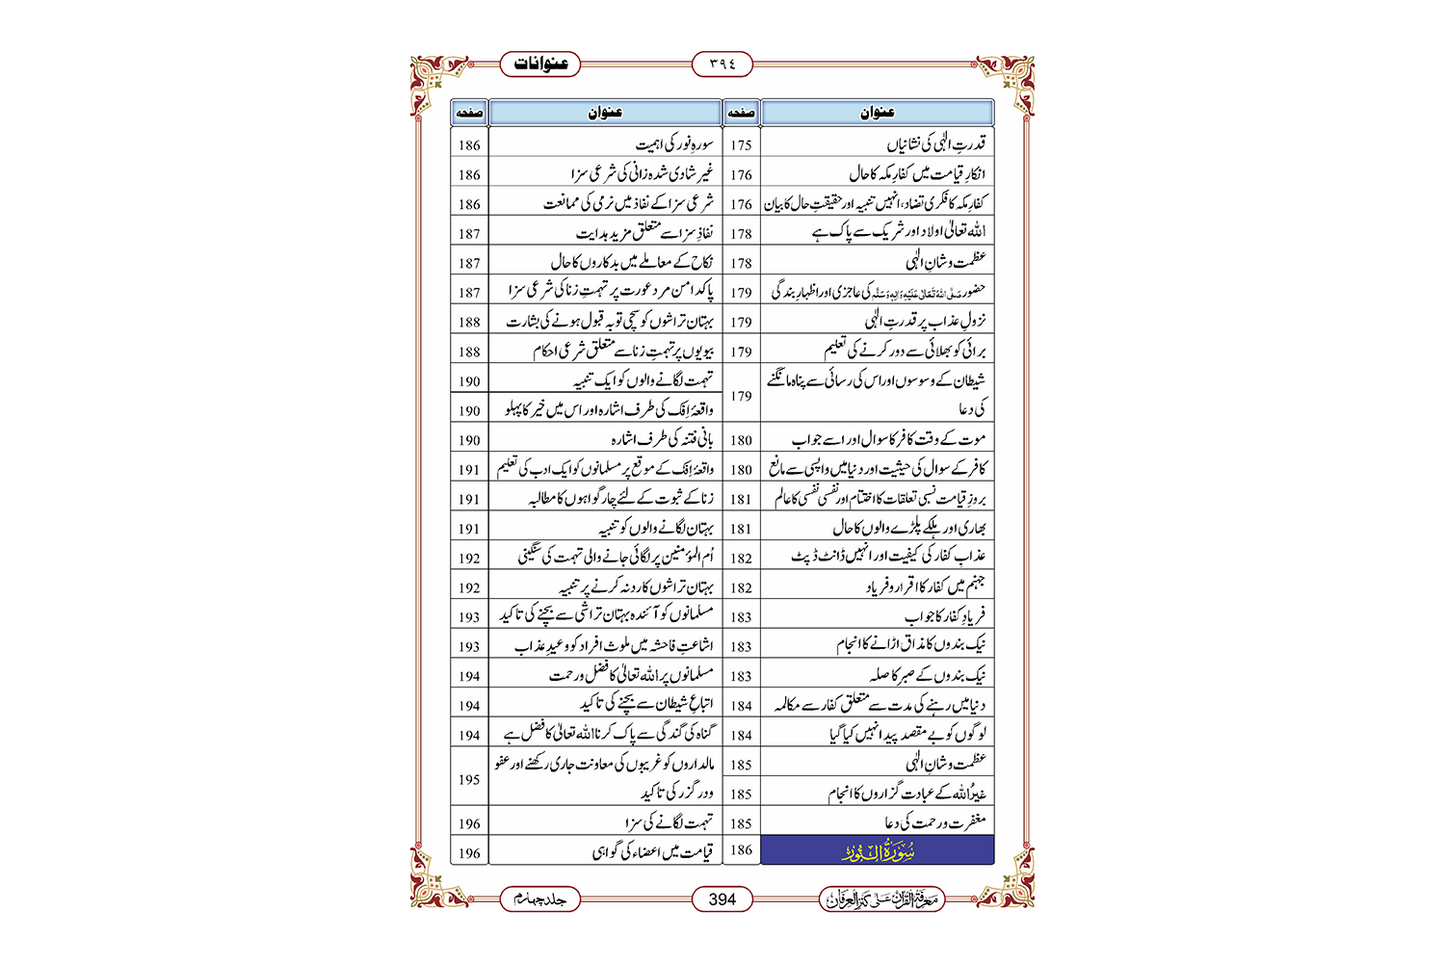 عنوانات
٣٩٤
عنوان صفحہ
قدرتِ الٰہی کی نشانیاں 175
انکارِ قیامت میں کفارِ مکہ کا حال 176
کفارِ مکہ کا فکری تضاد، انہیں تنبیہ اور حقیقتِ حال کا بیان 176
اللہ تعالیٰ اولاد اور شریک سے پاک ہے 178
عظمت و شانِ الٰہی 178
حضور صَلَّی اللہُ تَعَالٰی عَلَیْہِ وَاٰلِہٖ وَسَلَّم کی عاجزی اور اظہارِ بندگی 179
نزولِ عذاب پر قدرتِ الٰہی 179
برائی کو بھلائی سے دور کرنے کی تعلیم 179
شیطان کے وسوسوں اور اس کی رسائی سے پناہ مانگنے
کی دعا 179
موت کے وقت کافر کا سوال اور اسے جواب 180
کافر کے سوال کی حیثیت اور دنیا میں واپسی سے مانع 180
بروزِ قیامت نسبی تعلقات کا اختتام اور نفسی نفسی کا عالم 181
بھاری اور ہلکے پلڑے والوں کا حال 181
عذابِ کفار کی کیفیت اور انہیں ڈانٹ ڈپٹ 182
جہنم میں کفار کا اقرار و فریاد 182
فریادِ کفار کا جواب 183
نیک بندوں کا مذاق اڑانے کا انجام 183
نیک بندوں کے صبر کا صلہ 183
دنیا میں رہنے کی مدت سے متعلق کفار سے مکالمہ 184
لوگوں کو بے مقصد پیدا نہیں کیا گیا 184
عظمت و شانِ الٰہی 185
غیرُ اللہ کے عبادت گزاروں کا انجام 185
مغفرت و رحمت کی دعا 185
سُوْرَۃُ النُّوْر 186
عنوان صفحہ
سورۂ نور کی اہمیت 186
غیر شادی شدہ زانی کی شرعی سزا 186
شرعی سزا کے نفاذ میں نرمی کی ممانعت 186
نفاذِ سزا سے متعلق مزید ہدایت 187
نکاح کے معاملے میں بدکاروں کا حال 187
پاکدامن مرد عورت پر تہمتِ زنا کی شرعی سزا 187
بہتان تراشوں کو سچی توبہ قبول ہونے کی بشارت 188
بیویوں پر تہمتِ زنا سے متعلق شرعی احکام 188
تہمت لگانے والوں کو ایک تنبیہ 190
واقعۂ اِفک کی طرف اشارہ اور اس میں خیر کا پہلو 190
بانیِ فتنہ کی طرف اشارہ 190
واقعۂ اِفک کے موقع پر مسلمانوں کو ایک ادب کی تعلیم 191
زنا کے ثبوت کے لئے چار گواہوں کا مطالبہ 191
بہتان لگانے والوں کو تنبیہ 191
اُم المؤمنین پر لگائی جانے والی تہمت کی سنگینی 192
بہتان تراشوں کا رد نہ کرنے پر تنبیہ 192
مسلمانوں کو آئندہ بہتان تراشی سے بچنے کی تاکید 193
اشاعتِ فاحشہ میں ملوث افراد کو وعیدِ عذاب 193
مسلمانوں پر اللہ تعالیٰ کا فضل و رحمت 194
اتباعِ شیطان سے بچنے کی تاکید 194
گناہ کی گندگی سے پاک کرنا اللہ تعالیٰ کا فضل ہے 194
مالداروں کو غریبوں کی معاونت جاری رکھنے اور عفو
و درگزر کی تاکید 195
تہمت لگانے کی سزا 196
قیامت میں اعضاء کی گواہی 196
معرفۃ القرآن علٰی کنز العرفان
394
جلد چہارم